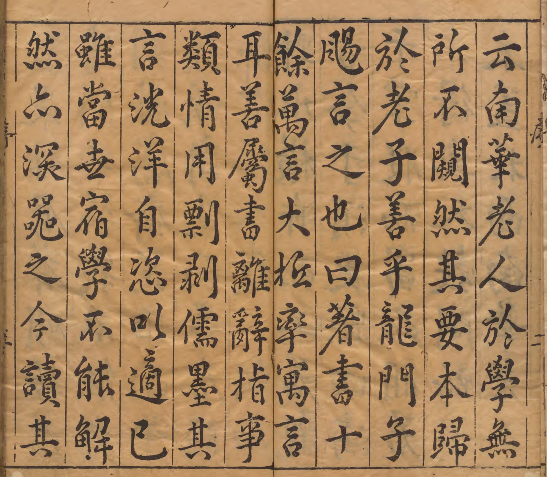 云南華老人於學無
所不闚然其要本歸
於老子善乎龍門子
賜言之也曰著書十
餘萬言大抵率寓言
耳善屬書離辭指事
類情用剽剥儒墨其
言洸洋自恣以適已
雖當世宿學不能解
然亦深噐之今讀其